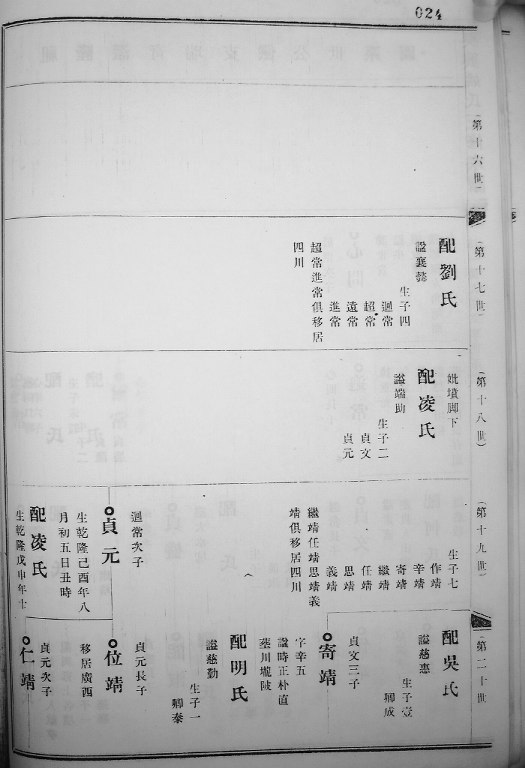 024
第十六世
第十七世
配劉氏
諡襄懿
生子四
迥常
超常
遠常
進常
超常進常俱移居
四川
第十八世
妣墳脚下
配凌氏
諡端勛
生子二
貞文
貞元
第十九世
生子七
作靖
辛靖
寄靖
繼靖
任靖
思靖
義靖
繼靖任靖思靖義
靖俱移居四川
迥常次子
貞元
生乾隆己酉年八
月初五日丑時
配凌氏
生乾隆戊申年十
第二十世
配吳氏
諡慈惠
生子壹
卿成
貞文三子
寄靖
字辛五
諡時正朴直
塟川壠陂
配明氏
諡慈勤
生子一
卿泰
貞元長子
位靖
移居廣西
貞元次子
仁靖